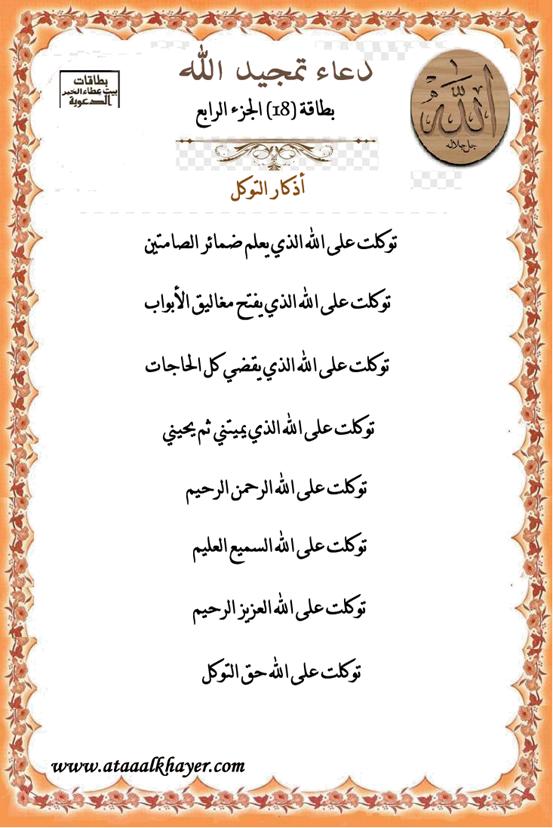 دعاء تمجيد الله
بطاقات
بيت عطاء الخير
الدعوية
الله
جل جلاله
بطاقة (18) الجزء الرابع
أذكار التوكل
توكلت على الله الذي يعلم ضمائر الصامتين
توكلت على الله الذي يفتح مغاليق الأبواب
توكلت على الله الذي يقضي كل الحاجات
توكلت على الله الذي يميتني ثم يحيني
توكلت على الله الرحمن الرحيم
توكلت على الله السميع العليم
توكلت على الله العزيز الرحيم
توكلت على الله حق التوكل
www.ataaalkhayer.com